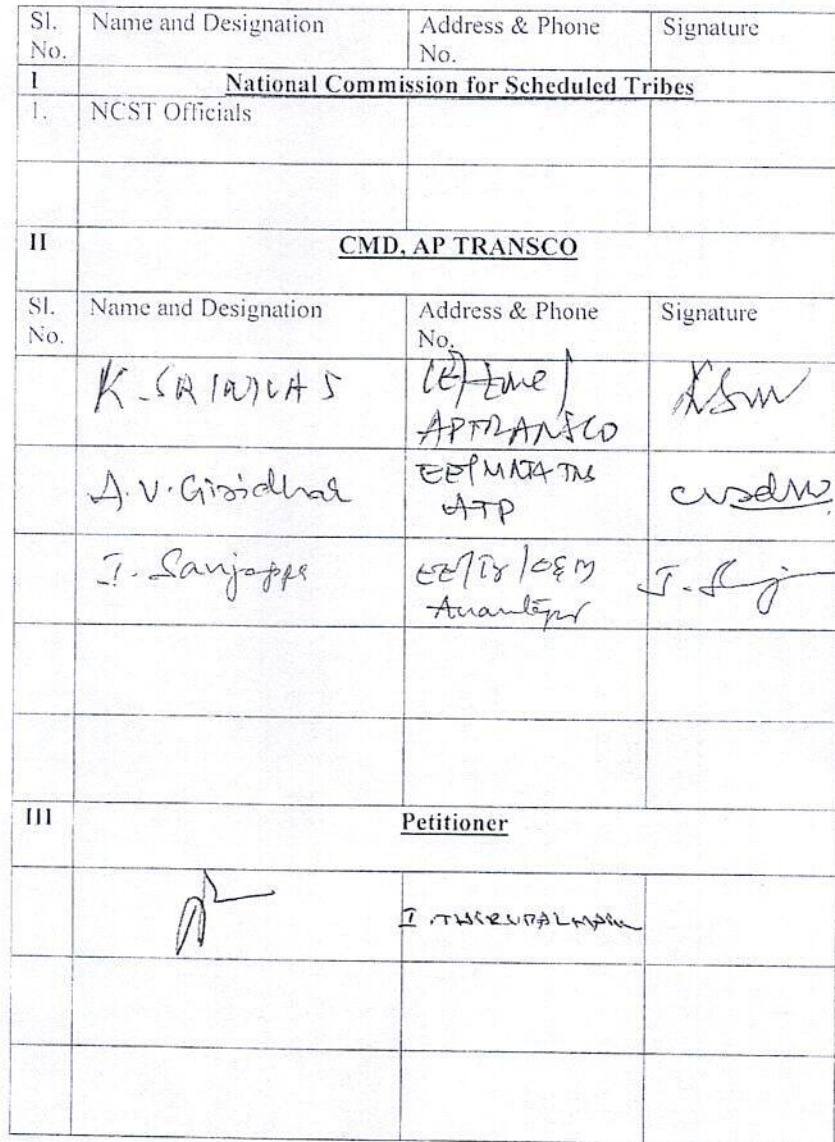 Sl. No. Name and Designation Address & Phone No. Signature
I National Commission for Scheduled Tribes
1. NCST Officials
II CMD, AP TRANSCO
Sl. No. Name and Designation Address & Phone No. Signature
K. SRINIVAS
APTRANSCO
A.V. Giridhar EE/
ATP
I. Sanjappa EE/ /O&M
Anantapur
III Petitioner
I.